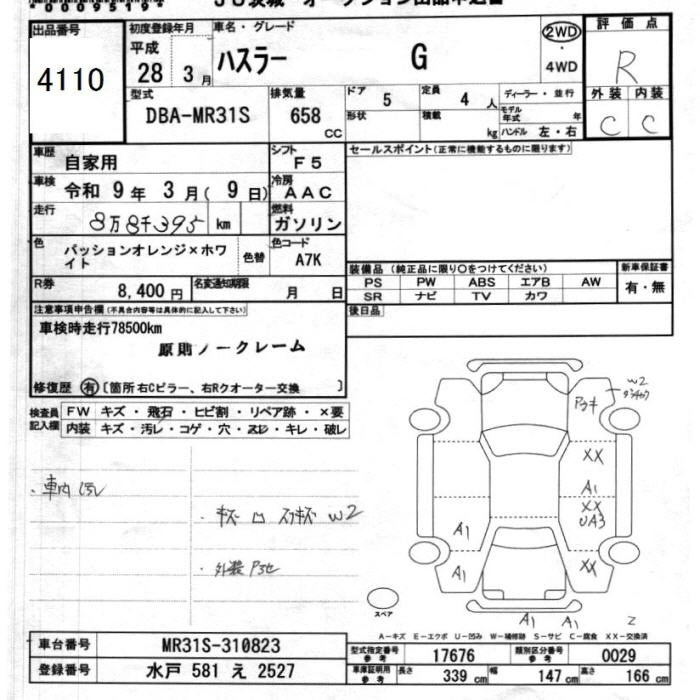 出品番号
4110
初度登録年月
平成
28 3 月
車名・グレード
ハスラー G
2WD
・
4WD
評価点
R
外装 内装
C C
型式
DBA-MR31S
排気量
658 CC
ドア 5
定員 4 人
形状
積載 kg
ディーラー・並行
モデル年式 年
ハンドル 左・右
車歴
自家用
シフト
F5
セールスポイント(正常に機能するものに限ります)
車検
令和 9 年 3 月( 9 日)
冷房
AAC
走行
8万8千395 km
燃料
ガソリン
色
パッションオレンジ×ホワイト
色替
色コード
A7K
装備品 (純正品に限り○をつけてください)
PS PW ABS エアB AW
SR ナビ TV カワ
新車保証書
有・無
R券
8,400 円
名変通知期限
月 日
後日品
注意事項申告欄(不具合内容等は具体的に記入して下さい)
車検時走行78500km
原則ノークレーム
修復歴 有 〔箇所 右Cピラー、右Rクオーター交換 〕
検査員記入欄
FW キズ・飛石・ヒビ割・リペア跡・×要
内装 キズ・汚レ・コゲ・穴・スレ・キレ・破レ
・車内 汚レ
・キズ 凹 スリキズ W2
W2
XX
A1
XX
UA3
A1
A1
XX
A1 A1
2
スペア
A-キズ E-エクボ U-凹み W-補修跡 S-サビ C-腐食 XX-交換済
車台番号 MR31S-310823
登録番号 水戸 581 え 2527
型式指定番号 参考 17676
類別区分番号 参考 0029
車庫証明用 参考 長さ 339 cm 幅 147 cm 高さ 166 cm